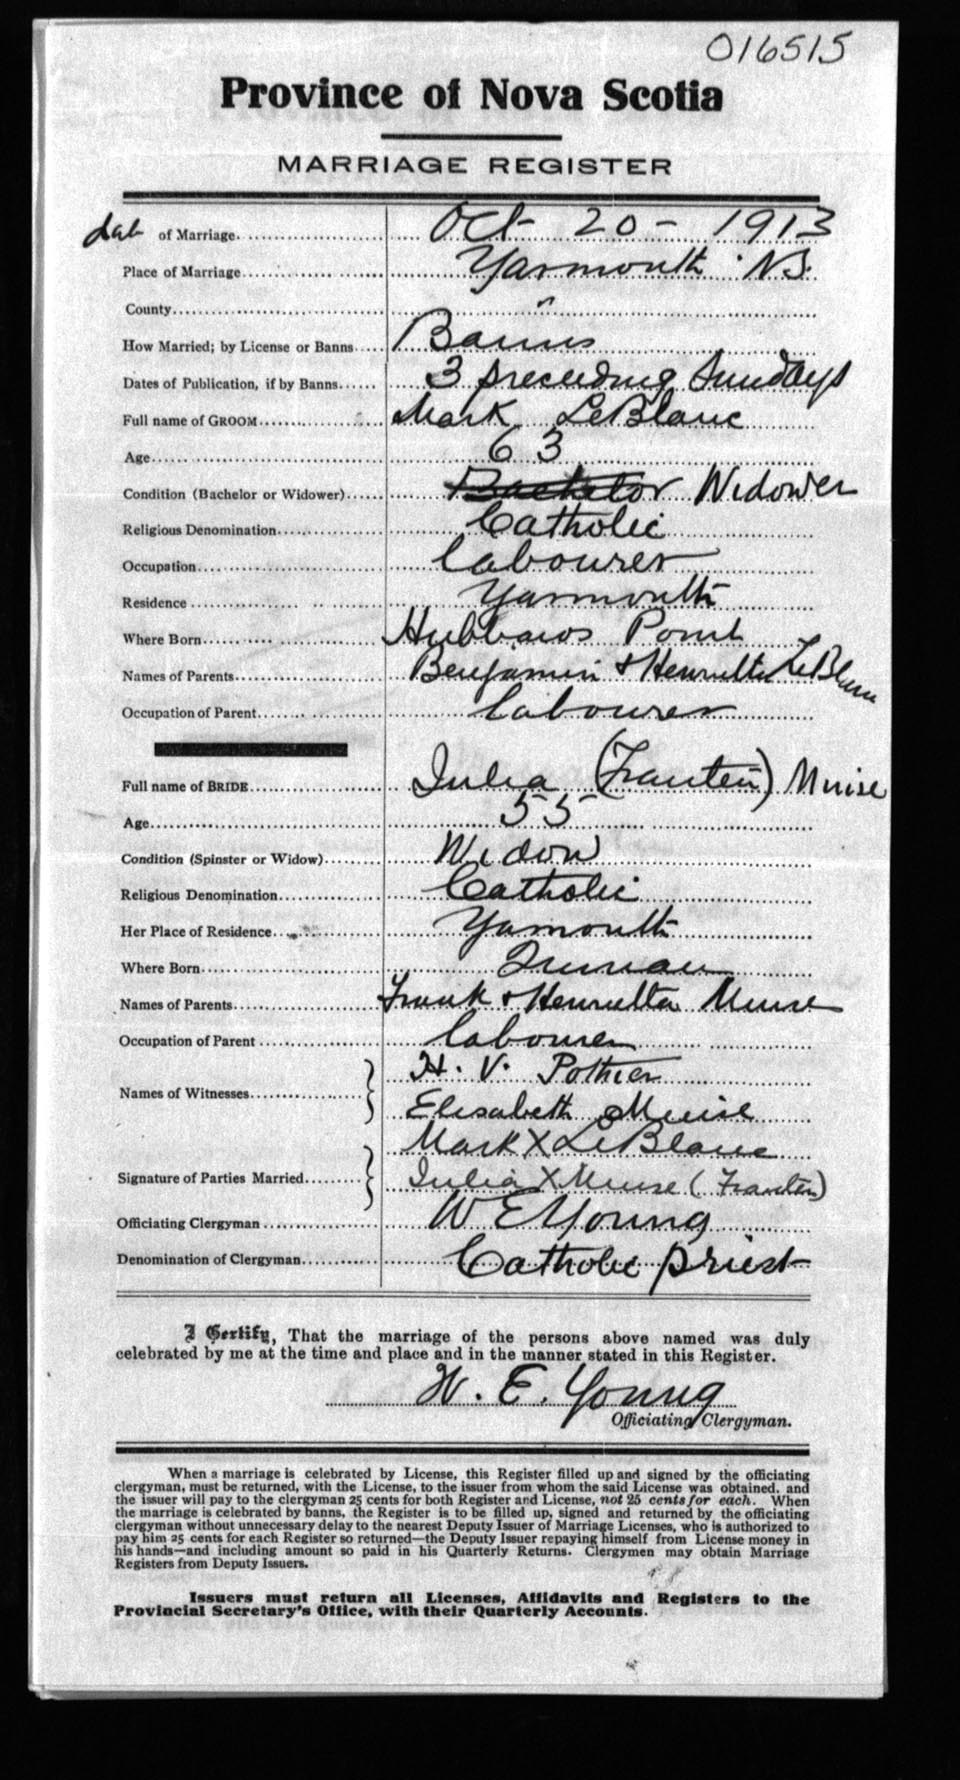 016515
Province of Nova Scotia
MARRIAGE REGISTER
date of Marriage Oct 20 - 1913
Place of Marriage Yarmouth N.S.
County "
How Married; by License or Banns Banns
Dates of Publication, if by Banns 3 preceeding Sundays
Full name of GROOM Mark LeBlanc
Age 63
Condition (Bachelor or Widower) Bachelor Widower
Religious Denomination Catholic
Occupation labourer
Residence Yarmouth
Where Born Hubbards Point
Names of Parents Benjamin & Henrietta LeBlanc
Occupation of Parent labourer
Full name of BRIDE Julia (Frontein) Muise
Age 55
Condition (Spinster or Widow) Widow
Religious Denomination Catholic
Her Place of Residence Yarmouth
Where Born
Names of Parents Frank & Henrietta Muise
Occupation of Parent labourer
Names of Witnesses H. V. Pothier
Elisabeth Muise
Signature of Parties Married Mark X LeBlanc
Julia X Muise
Officiating Clergyman W E Young
Denomination of Clergyman Catholic priest
I Certify, That the marriage of the persons above named was duly
celebrated by me at the time and place and in the manner stated in this Register.
W. E. Young
Officiating Clergyman.
When a marriage is celebrated by License, this Register filled up and signed by the officiating
clergyman, must be returned, with the License, to the issuer from whom the said License was obtained. and
the issuer will pay to the clergyman 25 cents for both Register and License, not 25 cents for each. When
the marriage is celebrated by banns, the Register is to be filled up, signed and returned by the officiating
clergyman without unnecessary delay to the nearest Deputy Issuer of Marriage Licenses, who is authorized to
pay him 25 cents for each Register so returned—the Deputy Issuer repaying himself from License money in
his hands—and including amount so paid in his Quarterly Returns. Clergymen may obtain Marriage
Registers from Deputy Issuers.
Issuers must return all Licenses, Affidavits and Registers to the
Provincial Secretary's Office, with their Quarterly Accounts.